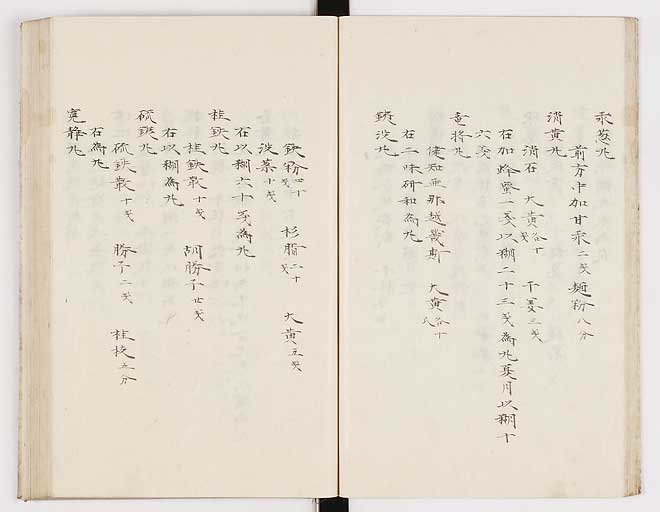 求茐丸
前方中加甘汞二戔 麺粉八分
消黄丸
消石 大黄各十戔 干姜三戔
右加蜂蜜一戔以糊二十三戔為丸夏月以糊十
六戔
竜将丸
健知亜那越幾斯 大黄各十
右二味研和為丸
鉄没丸
鉄粉四十戔 杉脂二十戔 大黄五戔
没薬十戔
右以糊六十戔為丸
桂鉄丸
桂鉄散十戔 胡勝子廿戔
右以糊為丸
硫鉄丸
硫鉄散十戔 勝子二戔 桂枝五分
右為丸
寛静丸